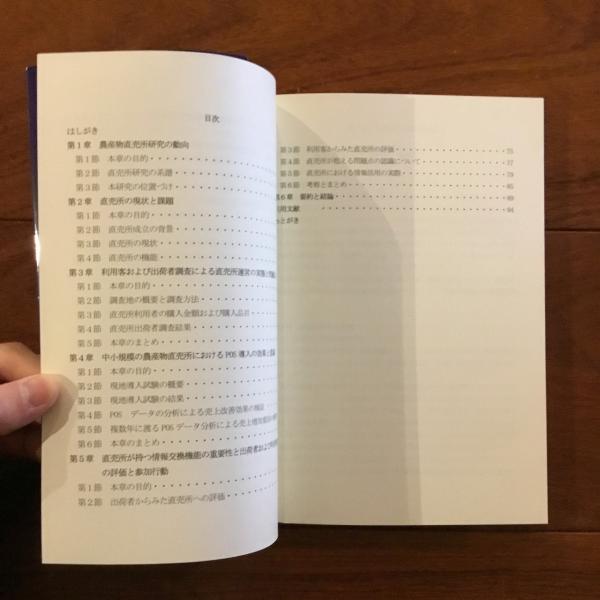 目次
はしがき
第1章 農産物直売所研究の動向
第1節 本章の目的・・・・・・・・・・・・・・・
第2節 直売所研究の系譜・・・・・・・・・・・・
第3節 本研究の位置づけ・・・・・・・・・・・・
第2章 直売所の現状と課題
第1節 本章の目的・・・・・・・・・・・・・・・
第2節 直売所成立の背景・・・・・・・・・・・・
第3節 直売所の現状・・・・・・・・・・・・・・
第4節 直売所の機能・・・・・・・・・・・・・・
第3章 利用客および出荷者調査による直売所運営の実態と
第1節 本章の目的・・・・・・・・・・・・・・・
第2節 調査地の概要と調査方法・・・・・・・・・
第3節 直売所利用者の購入金額および購入品目・・
第4節 直売所出荷者調査結果・・・・・・・・・・
第5節 本章のまとめ・・・・・・・・・・・・・・
第4章 中小規模の農産物直売所におけるPOS導入の効果と
第1節 本章の目的・・・・・・・・・・・・・・・
第2節 現地導入試験の概要・・・・・・・・・・・
第3節 現地導入試験の結果・・・・・・・・・・・
第4節 POS データの分析による売上改善効果の検証
第5節 複数年に渡るPOSデータ分析による売上増加
第6節 本章のまとめ・・・・・・・・・・・・・・
第5章 直売所が持つ情報交換機能の重要性と出荷者および
の評価と参加行動
第1節 本章の目的・・・・・・・・・・・・・・・
第2節 出荷者からみた直売所への評価・・・・・・
第3節 利用客からみた直売所の評価・・・・・・・・・・・・75
第4節 直売所が抱える問題点の認識について・・・・・・・・77
第5節 直売所における情報活用の実際・・・・・・・・・・・
第6節 考察とまとめ・・・・・・・・・・・・・・・・・・・85
第6章 要約と結論・・・・・・・・・・・・・・・・・・・・89
用文献・・・・・・・・・・・・・・・・・・・・・・・・・94
とがき